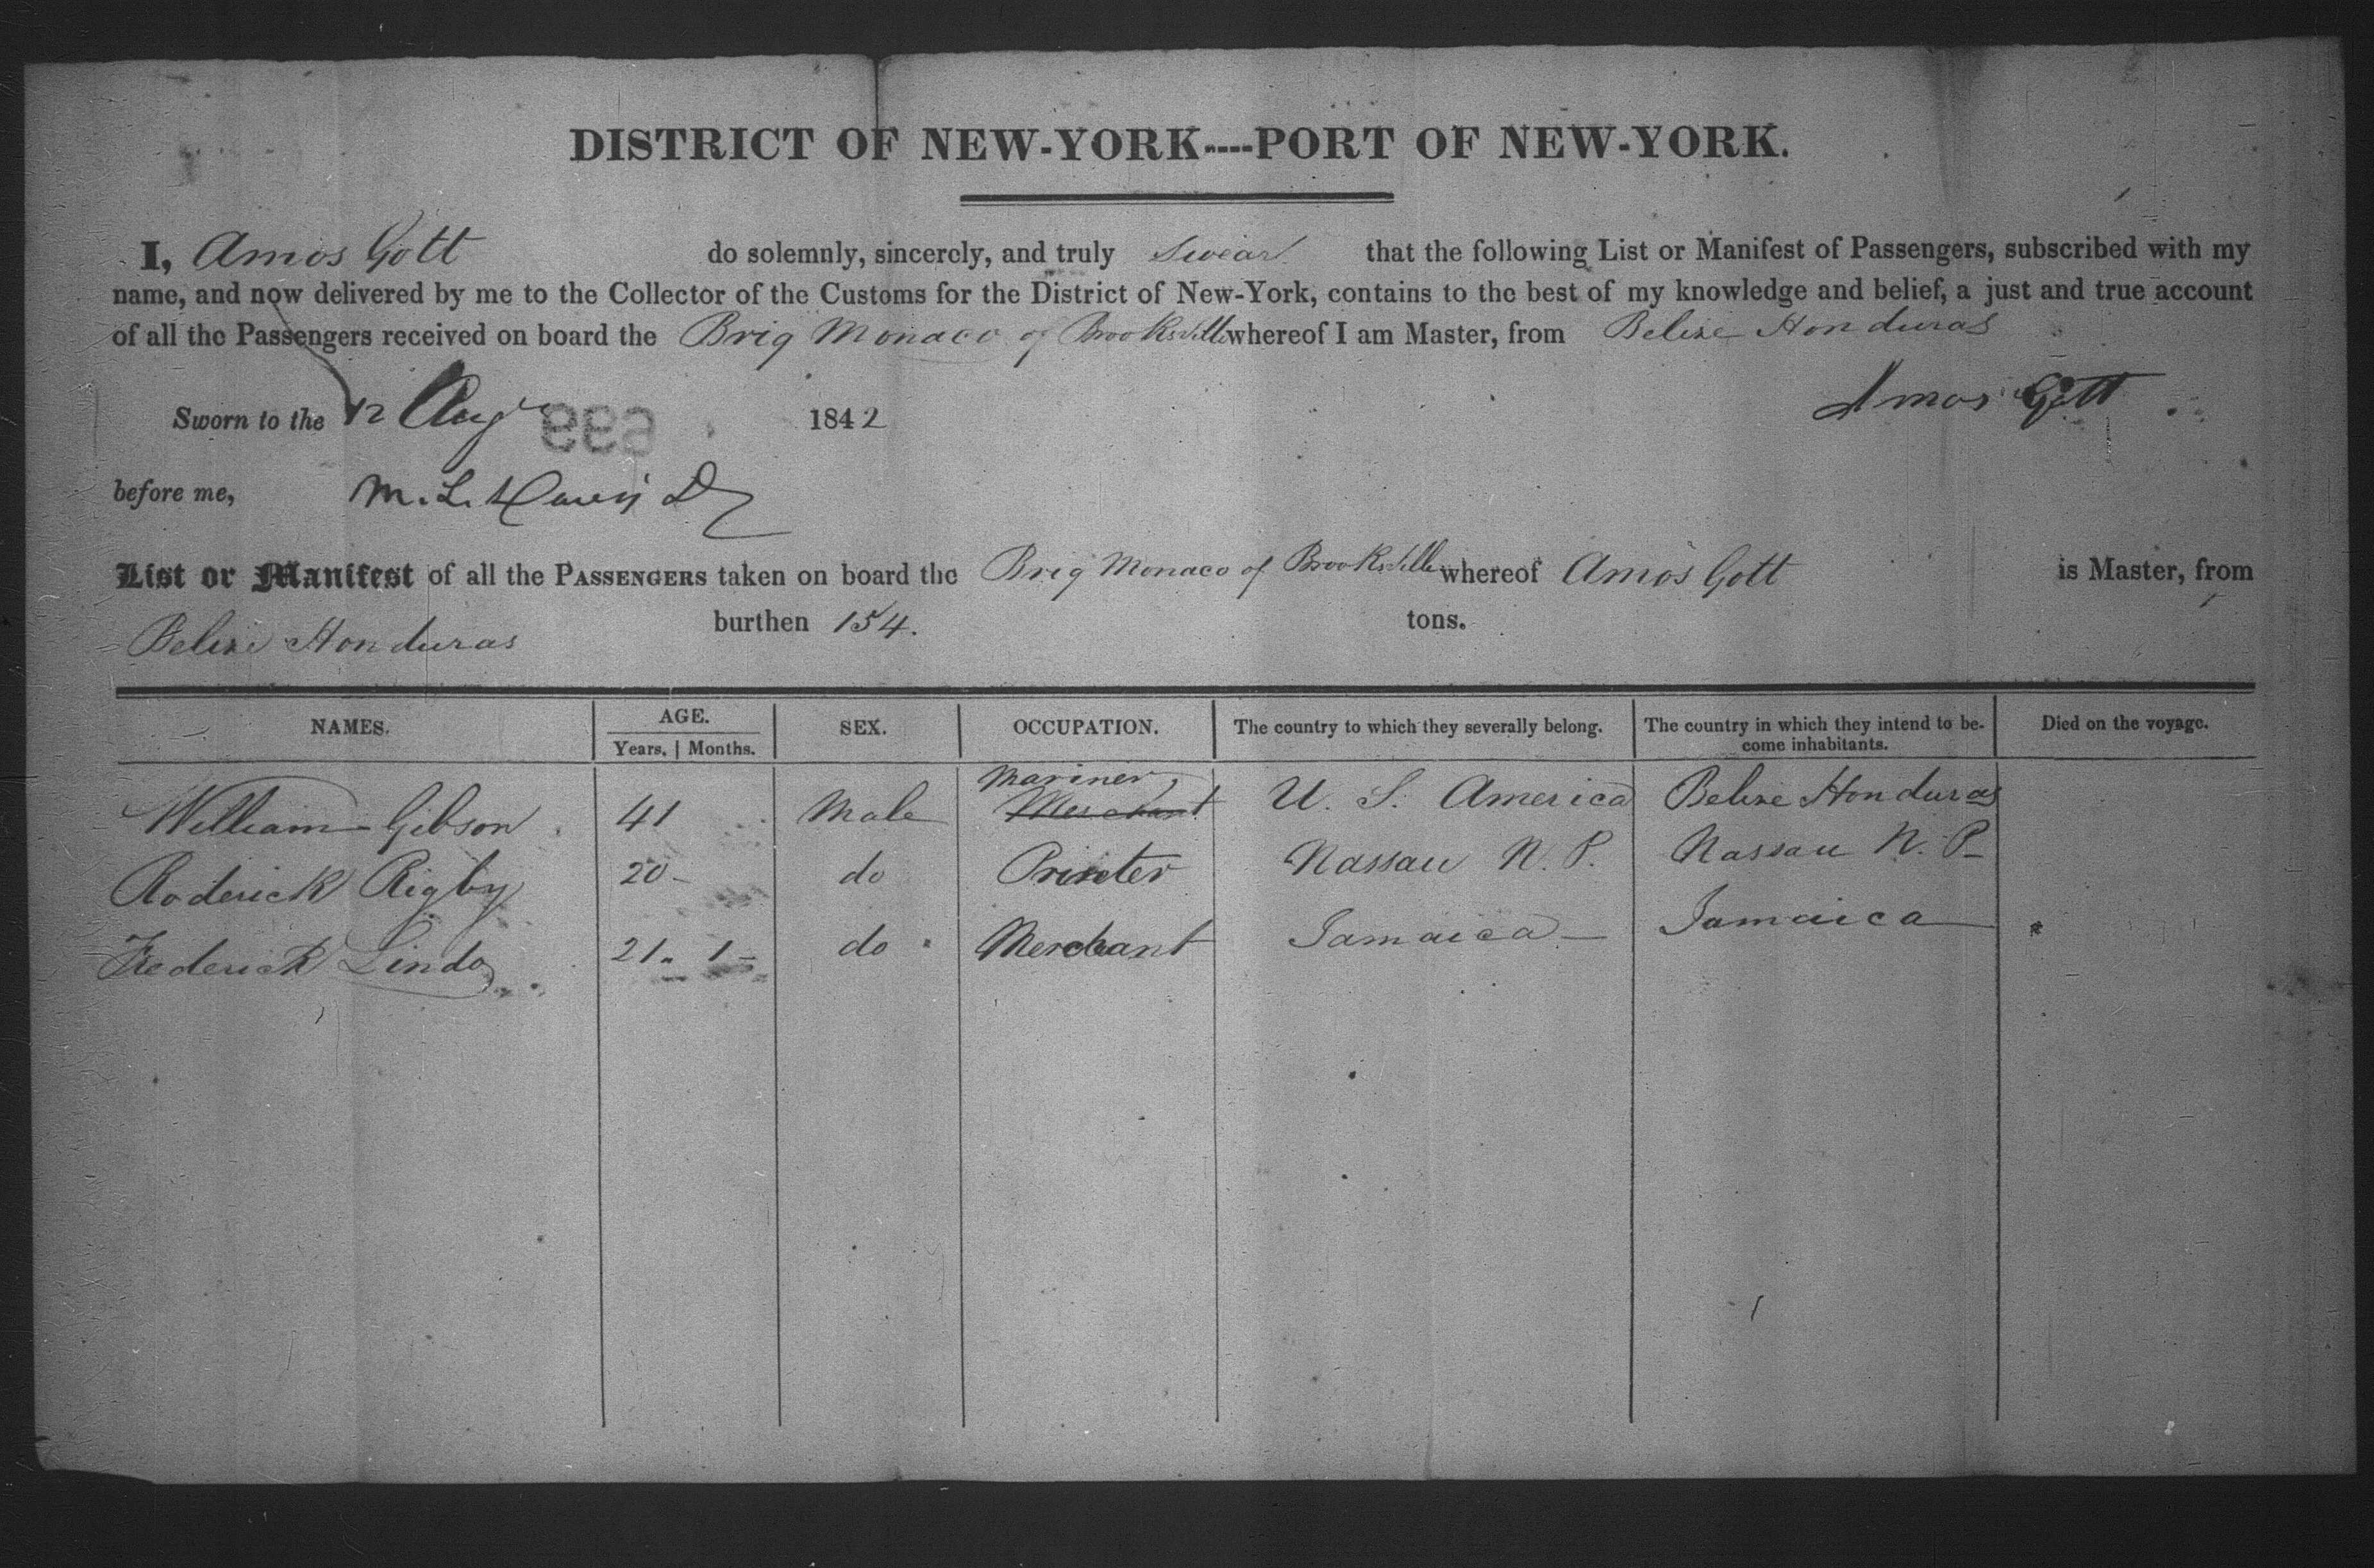 DISTRICT OF NEW-YORK----PORT OF NEW-YORK.
I, Amos Gott do solemnly, sincerely, and truly Swear that the following List or Manifest of Passengers, subscribed with my
name, and now delivered by me to the Collector of the Customs for the District of New-York, contains to the best of my knowledge and belief, a just and true account
of all the Passengers received on board the Brig Monaco of Brooksville whereof I am Master, from Belize Honduras
Amos Gott
Sworn to the 12 Aug 1842
before me, M. L. Davis
List or Manifest of all the PASSENGERS taken on board the Brig Monaco of Brooksville whereof Amos Gott is Master, from
Belize Honduras burthen 154. tons.
NAMES. AGE. SEX. OCCUPATION. The country to which they severally belong. The country in which they intend to be-
Years. Months. come inhabitants. Died on the voyage.
Mariner
William Gibson 41 Male Merchant U. S. America Belize Honduras
Roderick Rigby 20 - do Printer Nassau N. P. Nassau N. P -
Frederick Lindo 21 " 1 - do Merchant Jamaica - Jamaica